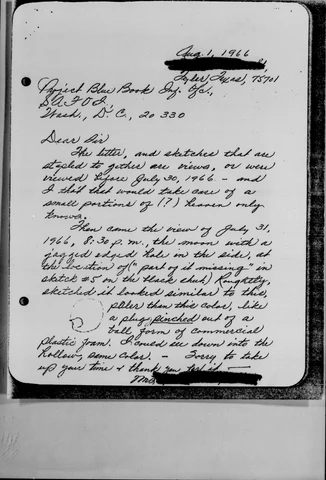 Aug. 1, 1966
Tyler, Texas, 75701
Project Blue Book Inf. Ofc.,
S A F O I
Wash., D. C., 20 330
Dear Sir
The letter, and sketches that are
stapled to gether are views, or were
viewed before July 30, 1966 - and
I that that would take care of a
small portions of (?) heaven only
knows.
Then came the view of July 31,
1966, 8:30 p.m., the moon with a
jagged edged hole in the side, at
the location of ("part of it missing" in
sketch #5 on the black sheet) Roughtly,
sketched it looked similar to this,
paler than this color, like
a plug pinched out of a
ball form of commercial
plastic foam. I could see down into the
hollow, same color. - Sorry to take
up your time & thank you